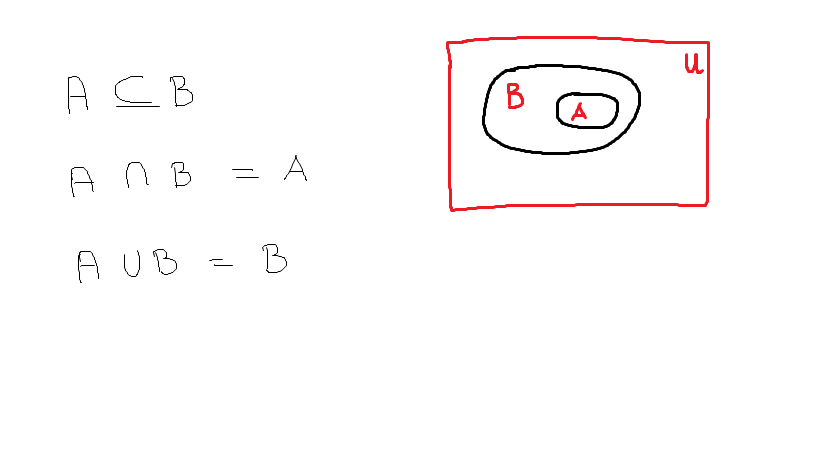 A ⊆ B
A ∩ B = A
A ∪ B = B
U
B
A